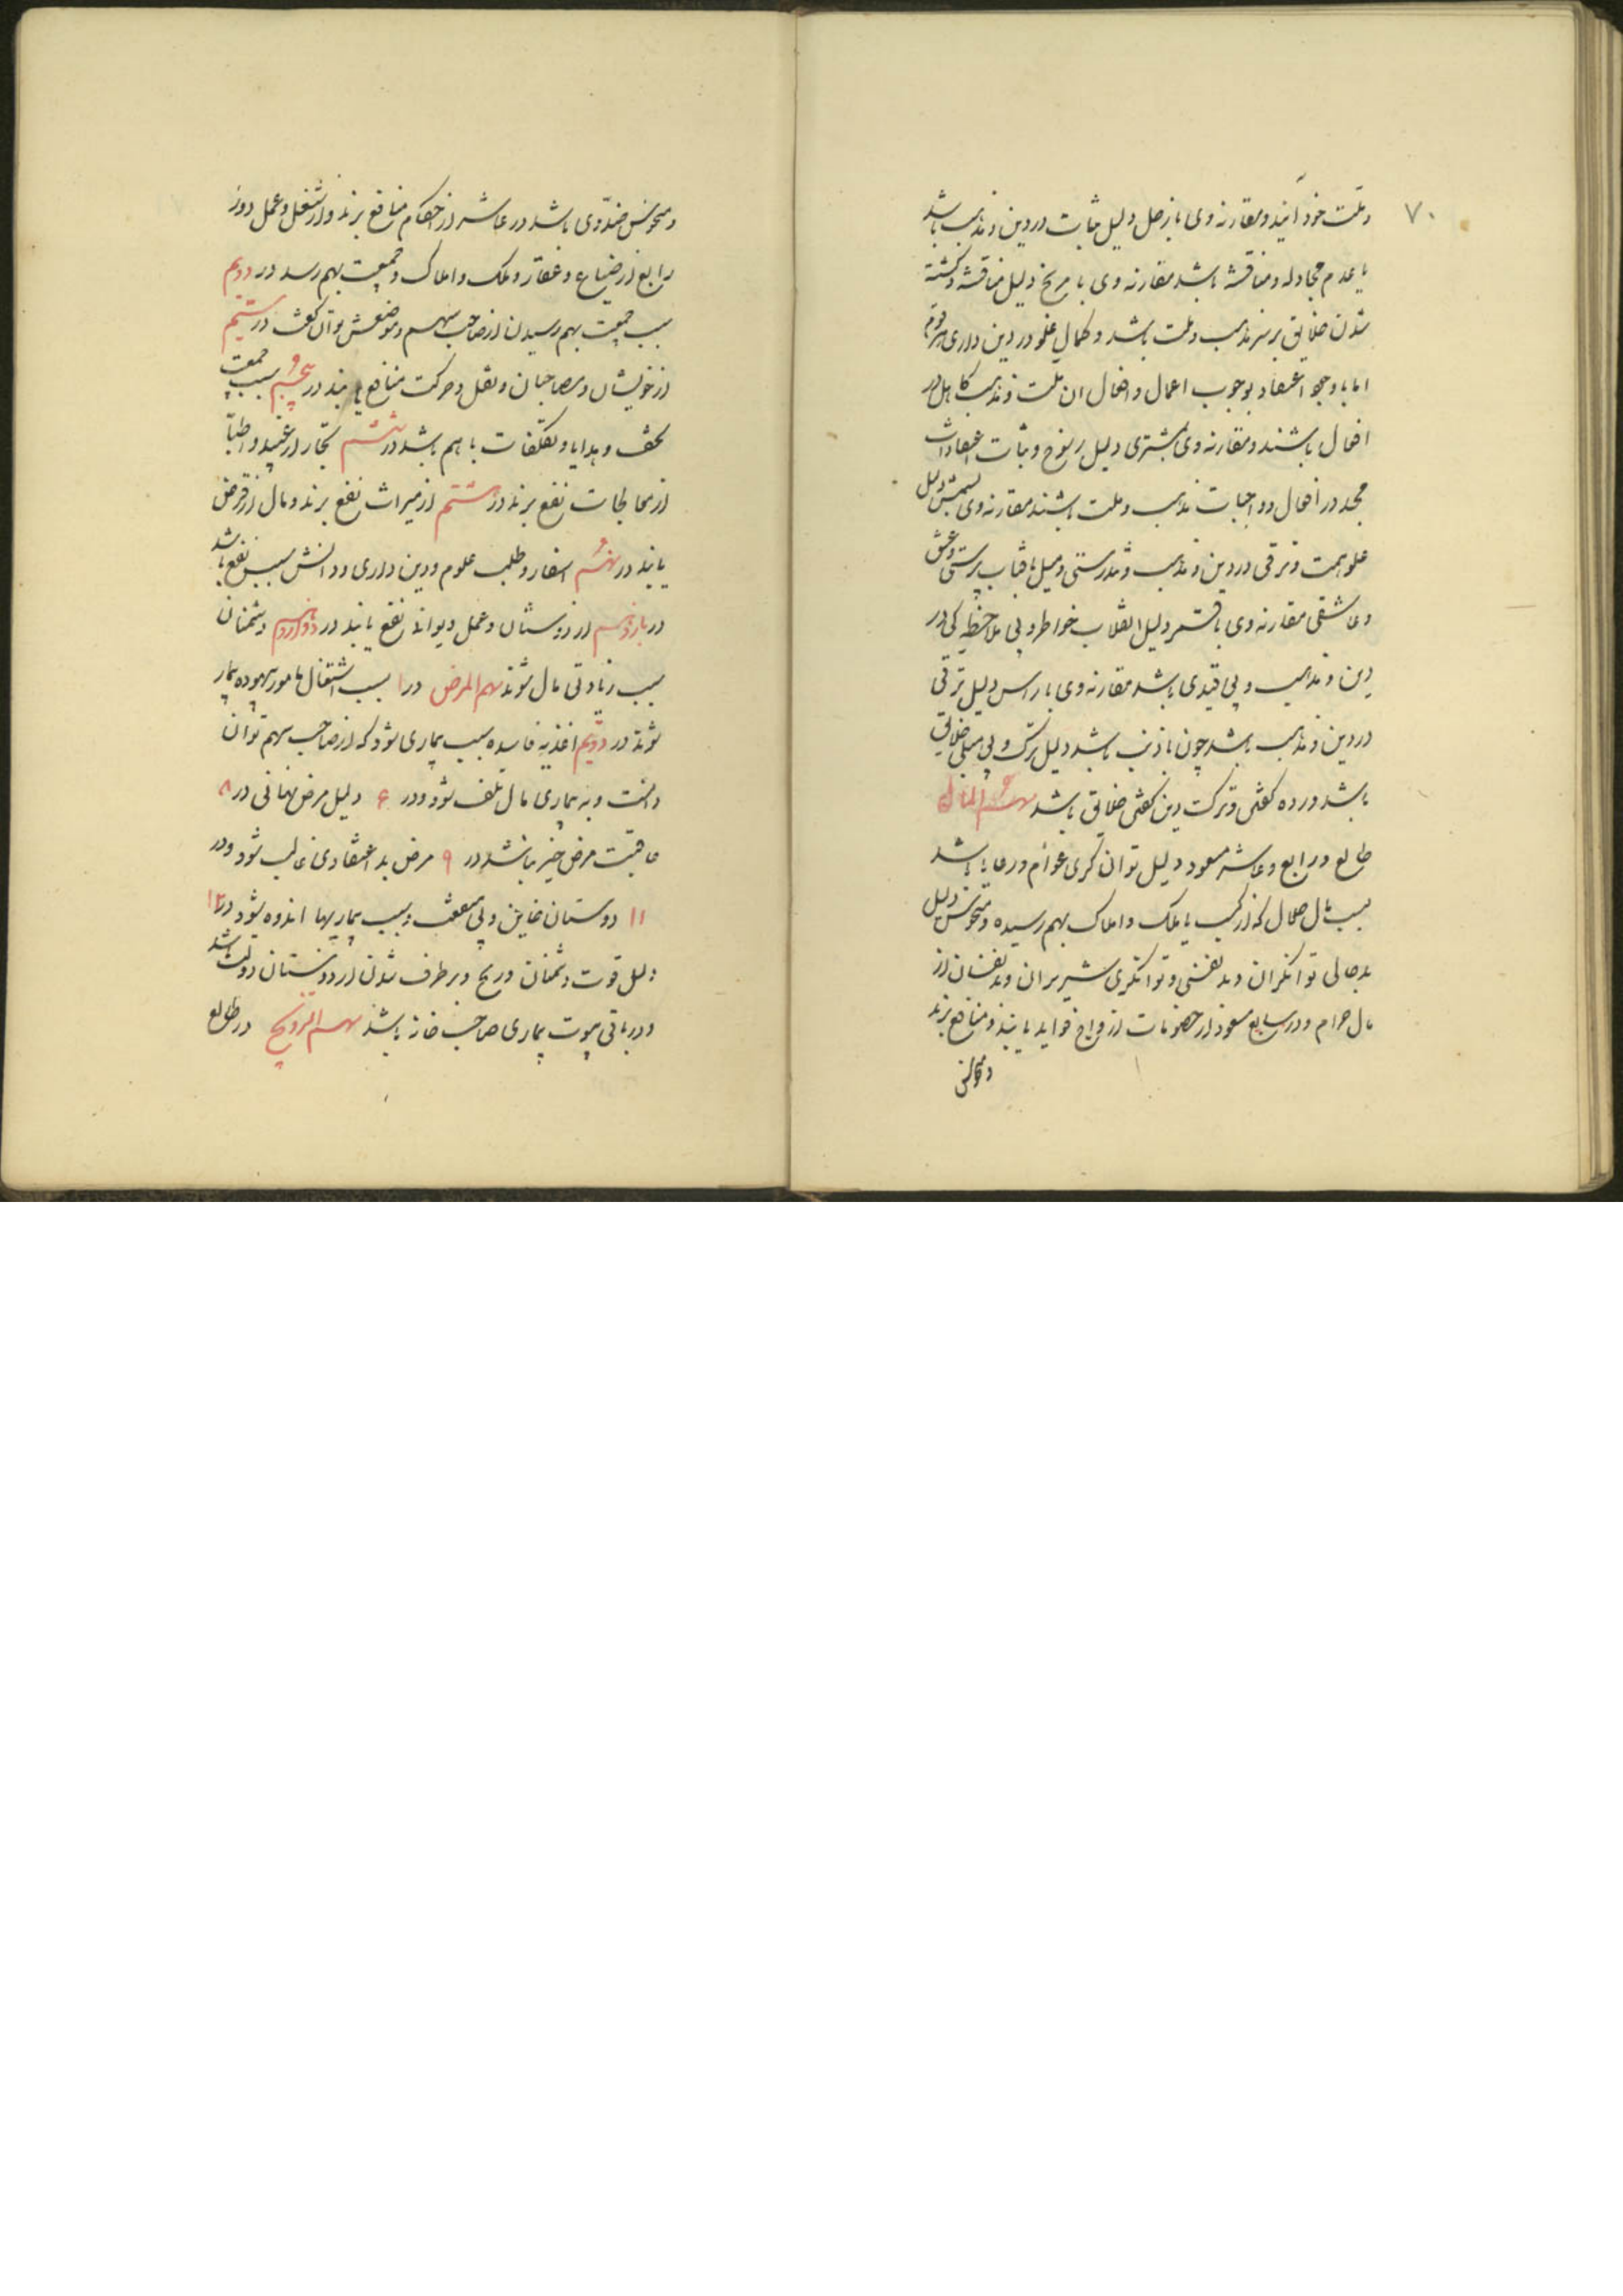 ۷۰
و ملت خود آیند و مقارنه وی با زحل دلیل ثبات در دین و مذهب باشد
با عدم مجادله و مناقشه باشد مقارنه وی با مریخ دلیل مناقشه و کشته
شدن خلایق بر سر مذهب و ملت باشد و کمال غلو در دین داری
اما با وجود اعتقاد بوجوب اعمال و افعال ان ملت و مذهب کاهل در
افعال باشند و مقارنه وی بمشتری دلیل رسوخ و ثبات اعتقادات
مجد در افعال و واجبات مذهب و ملت باشند مقارنه وی بشمس دلیل
علو همت و ترقی در دین و مذهب و تندرستی و میل بافتاب پرستی و عشق
و عاشقی مقارنه وی با قمر دلیل انقلاب خواطر و بی ملاحظه کی در
دین و مذهب و بی قیدی باشد مقارنه وی با راس دلیل ترقی
در دین و مذهب باشد چون با ذنب باشد دلیل ترک و بی میلی خلایق
باشد در ده کفتی و ترک دین کفتی خلایق باشد سهم المال
طالع و رابع و عاشر مسعود دلیل توانکری عوام و رعایا باشد
بسبب مال حلال که از کسب یا ملک و املاک بهم رسیده و منحوس دلیل
بدحالی توانکران و بد نفسی و توانکری شریران و بدنفسان از
مال حرام و در سابع مسعود از خصومات ازواج فواید یابند و منافع برند
و منحوس
و منحوس ضد وی باشد در عاشر از حکام منافع برند و از شغل و عمل دور
رابع از ضیاع و عقار و ملک و املاک و جمعیت بهم رسد در دویم
سبب جمعیت بهم رسیدن از صاحب سهم و موضعش توان کفت در سیم
از خویشان و مصاحبان و نقل و حرکت منافع یابند در پنجم سبب جمعیت
تحف و هدایا و تکلفات با هم باشد در ششم تجار از عبید و اطبا
از معالجات نفع برند در هشتم از میراث نفع برند و مال از قرض
یابند در نهم اسفار و طلب علوم و دین داری و دانش سبب نفع باشد
در یازدهم از دوستان و عمل دیوان نفع یابند در دوازدهم دشمنان
سبب زیادتی مال شوند سهم المرض در ۱ بسبب اشتغال بامور بیهوده بیمار
شوند در دویم اغذیه فاسده سبب بیماری شود که از صاحب سهم توان
دانست و به بیماری مال تلف شود و در ۶ دلیل مرض نهانی در ۸
عاقبت مرض خیر نباشد در ۹ مرض بد اعتقادی غالب شود و در
۱۱ دوستان خاین و بی منفعت و سبب بیماریها اندوه شود در ۱۲
دلیل قوت دشمنان و رنج و برطرف شدن از دوستان دولت باشد
و در باقی بیوت بیماری صاحب خانه باشد سهم التزویج در طالع